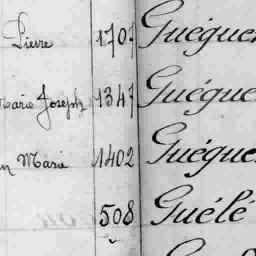 Pierre 1707 Guéguen
Marie Joseph 1347 Guégue
Marie 1402 Guégue
508 Guélé